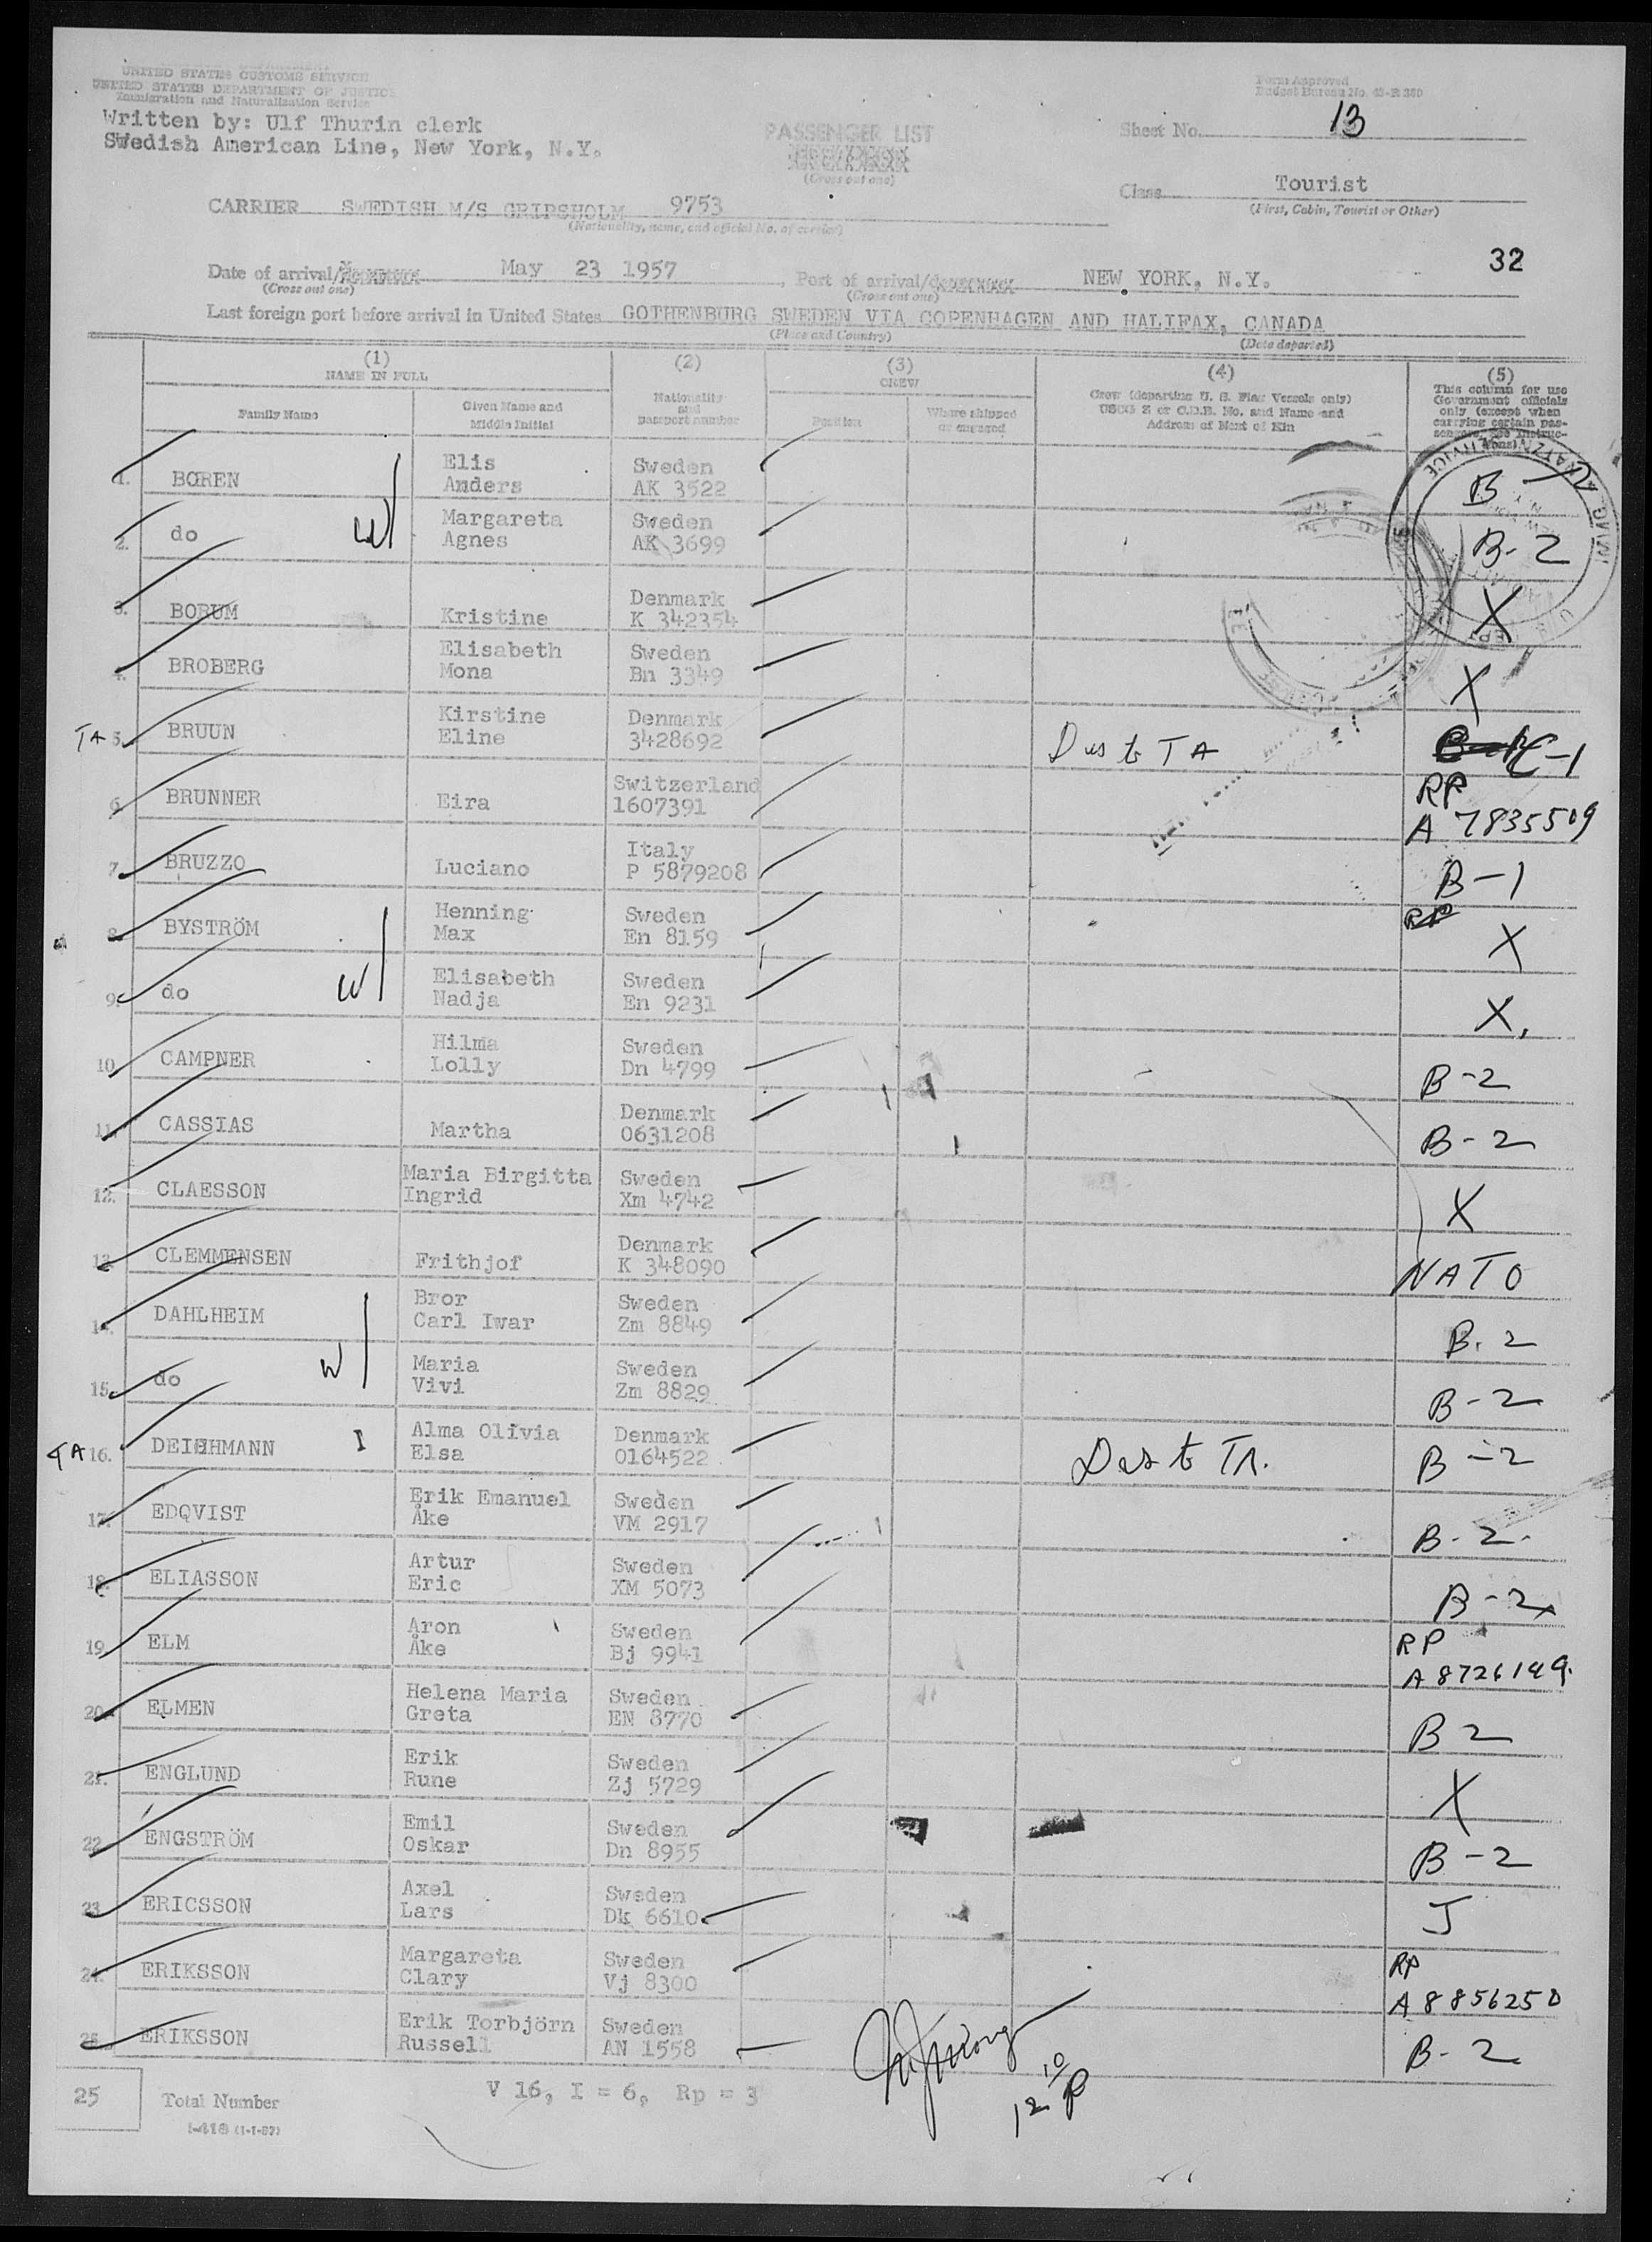 UNITED STATES CUSTOMS SERVICE
UNITED STATES DEPARTMENT OF JUSTICE
Immigration and Naturalization Service
Form Approved
Budget Bureau No. 43-R 360
Written by: Ulf Thurin clerk
Swedish American Line, New York, N.Y.
PASSENGER LIST
(Cross out one)
Sheet No. 13
Class Tourist
(First, Cabin, Tourist or Other)
CARRIER SWEDISH M/S GRIPSHOLM 9753
(Nationality, name, and official No. of carrier)
32
Date of arrival/ May 23 1957, Port of arrival/ NEW YORK, N.Y.
(Cross out one) (Cross out one)
Last foreign port before arrival in United States GOTHENBURG SWEDEN VIA COPENHAGEN AND HALIFAX, CANADA
(Place and Country) (Date departed)
(1) (2) (3) (4) (5)
NAME IN FULL
Family Name
Given Name and Middle Initial
Nationality and passport number
CREW
Position
Where shipped or engaged
Crew (departing U. S. Flag Vessels only)
USCG Z or C.D.B. No. and Name and
Address of Next of Kin
This column for use
Government officials
only (except when
carrying certain pas-
sengers, see Instruc-
tions)
1. BOREN Elis Anders Sweden AK 3522 B-2
2. do W Margareta Agnes Sweden AK 3699 B-2
3. BORUM Kristine Denmark K 342354 X
4. BROBERG Elisabeth Mona Sweden Bn 3349 X
TA 5. BRUUN Kirstine Eline Denmark 3428692 Dus to TA C-1
6. BRUNNER Eira Switzerland 1607391 RP A 7835509
7. BRUZZO Luciano Italy P 5879208 B-1
8. BYSTRÖM Henning Max Sweden En 8159 RP X
9. do W Elisabeth Nadja Sweden En 9231 X.
10. CAMPNER Hilma Lolly Sweden Dn 4799 B-2
11. CASSIAS Martha Denmark 0631208 B-2
12. CLAESSON Maria Birgitta Ingrid Sweden Xm 4742 X
13. CLEMMENSEN Frithjof Denmark K 348090 NATO
14. DAHLHEIM Bror Carl Iwar Sweden Zm 8849 B.2
15. do W Maria Vivi Sweden Zm 8829 B-2
TA 16. DEICHMANN I Alma Olivia Elsa Denmark 0164522 Des to TA. B-2
17. EDQVIST Erik Emanuel Åke Sweden VM 2917 B-2.
18. ELIASSON Artur Eric Sweden XM 5073 B-2
19. ELM Aron Åke Sweden Bj 9941 RP A 8726149.
20. ELMEN Helena Maria Greta Sweden EN 8770 B 2
21. ENGLUND Erik Rune Sweden Zj 5729 X
22. ENGSTRÖM Emil Oskar Sweden Dn 8955 B-2
23. ERICSSON Axel Lars Sweden Dk 6610 J
24. ERIKSSON Margareta Clary Sweden Vj 8300 RP A 8856250
25. ERIKSSON Erik Torbjörn Russell Sweden AN 1558 B-2
25 Total Number
I-418 (1-1-57)
V 16, I = 6, Rp = 3
12 10 P